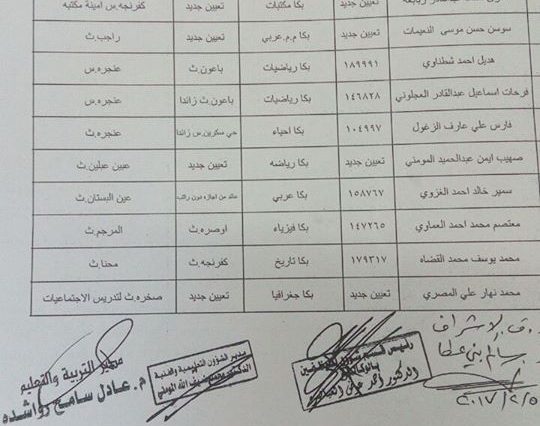 بكا مكتبات تعيين جديد كفرنجه.س امينة مكتبه
سوسن حسن موسى النعيمات تعيين جديد بكا م.م.عربي تعيين جديد راجب.ث
هديل احمد شطناوي ١٨٩٩٩١ بكا رياضيات باعون.ث عنجره.س
فرحات اسماعيل عبدالقادر العجلوني ١٤٦٨٢٨ بكا رياضيات باعون.ث زائدا عنجره.س
فارس علي عارف الزغول ١٠٤٩٩٧ بكا احياء حي سكرين.س زائدا عنجره.ث
صهيب ايمن عبدالحميد المومني تعيين جديد بكا رياضه تعيين جديد عبين عبلين.ث
سمير خالد احمد الغزوي ١٥٨٧٦٧ بكا عربي عائد من اجازه دون راتب عين البستان.ث
معتصم محمد احمد العماري ١٤٧٢٦٥ بكا فيزياء اوصره.ث المرجم.ث
محمد يوسف محمد القضاه ١٧٩٣١٧ بكا تاريخ كفرنجه.ث محنا.ث
محمد نهار علي المصري تعيين جديد بكا جغرافيا تعيين جديد صخره.ث لتدريس الاجتماعيات
الإشراف
٢٠١٧/٢/٥
رئيس قسم شؤون الموظفين
بالوكالة
الدكتور احمد
مدير الشؤون التعليمية والفنية
مدير التربية والتعليم
م. عادل سامح رواشده